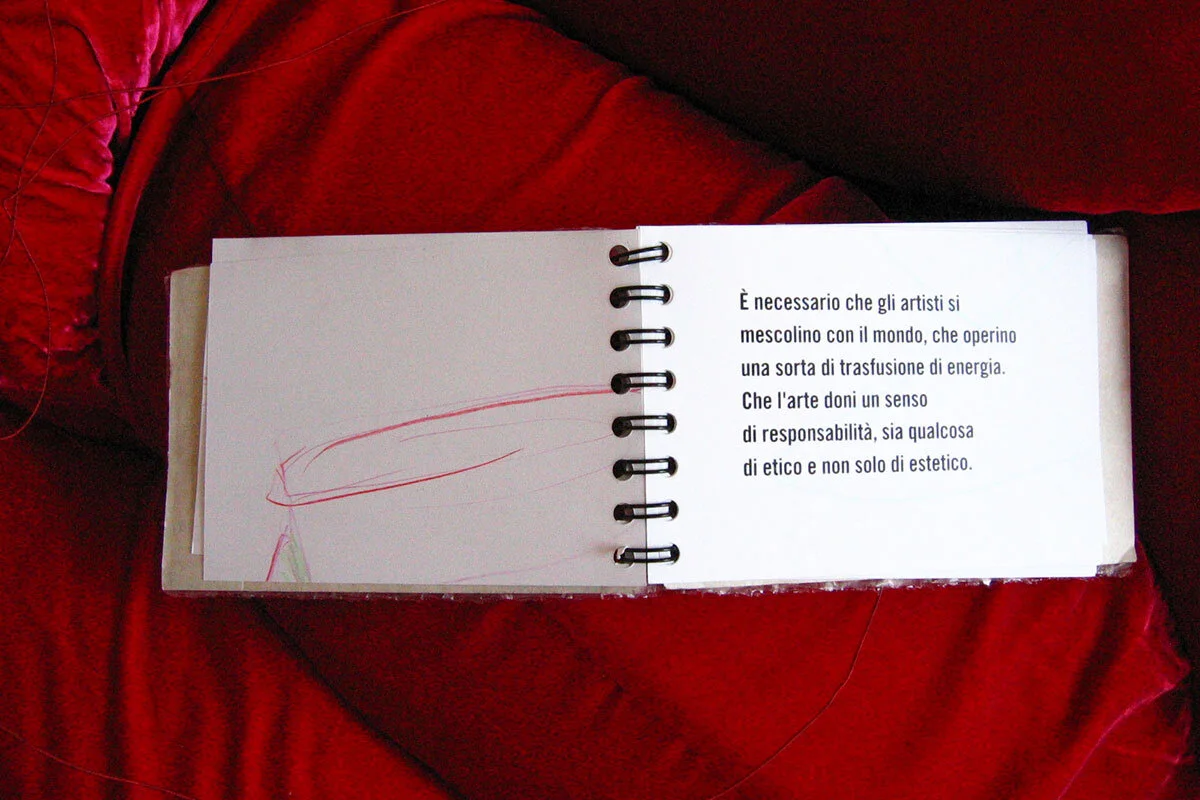 È necessario che gli artisti si
mescolino con il mondo, che operino
una sorta di trasfusione di energia.
Che l'arte doni un senso
di responsabilità, sia qualcosa
di etico e non solo di estetico.